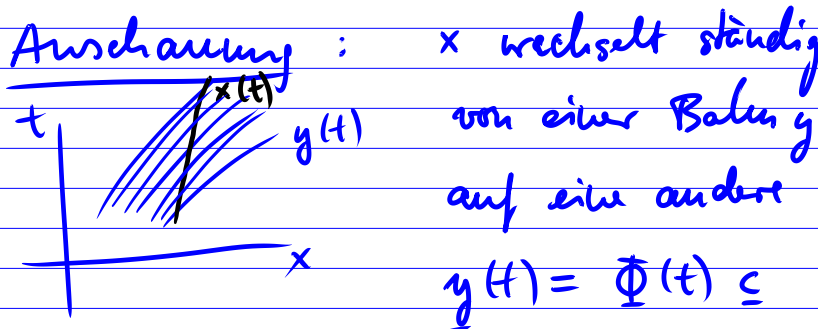 Anschauung : x wechselt ständig
x(t)
t
y(t)
von einer Bahn y
auf eine andere
x
y(t) = Φ(t) c